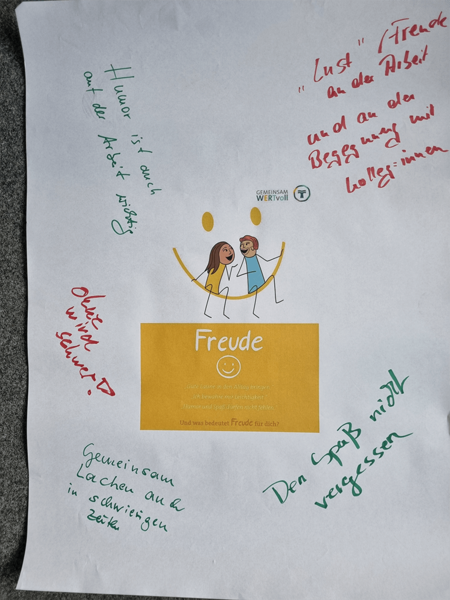 "Lust" / Freude
an der Arbeit
und an der
Begegnung mit
Kolleg:innen
Humor ist auch
auf der Arbeit wichtig
GEMEINSAM
WERTvoll
Freude
Und was bedeutet Freude für dich?
ohne
wird
schwer
Gemeinsam
Lachen auch
in schwierigen
Zeiten
Den Spaß nicht
vergessen